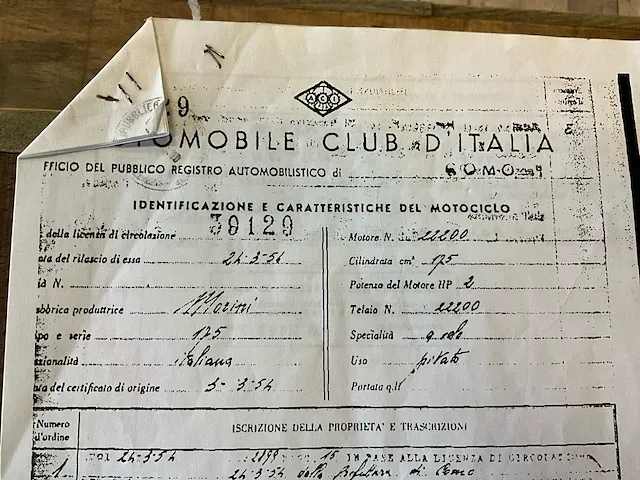 9
PUBBLICO
ACI
TOMOBILE CLUB D'ITALIA
FFICIO DEL PUBBLICO REGISTRO AUTOMOBILISTICO di COMO
IDENTIFICAZIONE E CARATTERISTICHE DEL MOTOCICLO
della licenza di circolazione 39129
Motore N. 22200
ata del rilascio di essa 24-3-54
Cilindrata cm³ 175
N.
Potenza del Motore HP 2
abbrica produttrice Morini
Telaio N. 22200
po e serie 175
Specialità
zionalità italiana
Uso privato
ta del certificato di origine 3-3-54
Portata q.li
Numero d'ordine
ISCRIZIONE DELLA PROPRIETA' E TRASCRIZIONI
1
24-3-54 2899 15 IN BASE ALLA LICENZA DI CIRCOLAZIONE
24-3-54 della Prefettura di Como